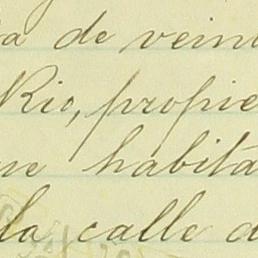 a de veint
Rio, propie
ue habita
la calle d